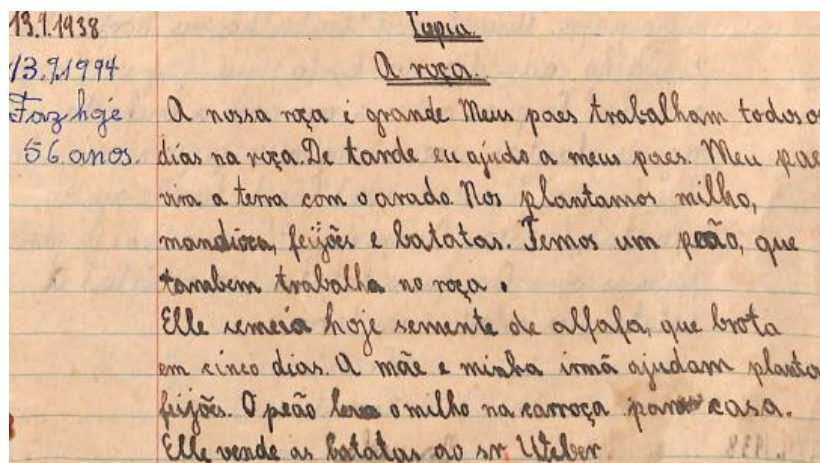 13.9.1938
Copia.
13.9.1994
A roça.
Faz hoje
56 anos.
A nossa roça é grande Meus paes trabalham todos os
dias na roça. De tarde eu ajudo a meus paes. Meu pae
vira a terra com o arado. Nos plantamos milho,
mandioca, feijões e batatas. Temos um peão, que
tambem trabalha no roça.
Elle semeia hoje semente de alfafa, que brota
em cinco dias. A mãe e minha irmã ajudam planta
feijões. O peão leva o milho na carroça para casa.
Elle vende as batatas ao sr. Weber